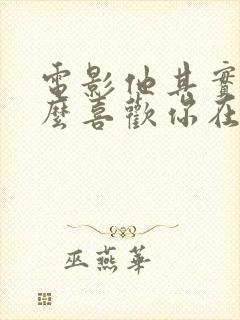 電影他其實
麼喜歡你在
巫燕華